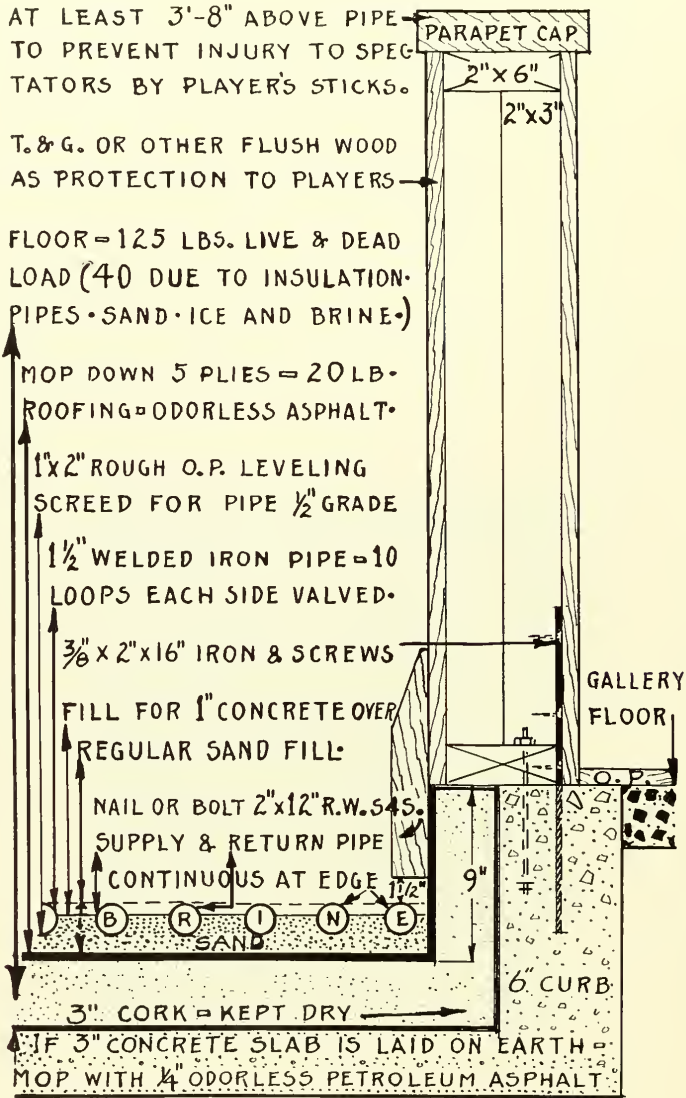 AT LEAST 3'-8" ABOVE PIPE
TO PREVENT INJURY TO SPEC-
TATORS BY PLAYER'S STICKS.
PARAPET CAP
2" x 6"
2"x3"
T. & G. OR OTHER FLUSH WOOD
AS PROTECTION TO PLAYERS
FLOOR = 125 LBS. LIVE & DEAD
LOAD (40 DUE TO INSULATION·
PIPES · SAND · ICE AND BRINE·)
MOP DOWN 5 PLIES = 20 LB·
ROOFING = ODORLESS ASPHALT·
1"x 2" ROUGH O.P. LEVELING
SCREED FOR PIPE ½" GRADE
1½" WELDED IRON PIPE = 10
LOOPS EACH SIDE VALVED·
⅜" x 2" x 16" IRON & SCREWS
GALLERY
FLOOR
FILL FOR 1" CONCRETE OVER
REGULAR SAND FILL·
O.P.
NAIL OR BOLT 2"x12" R.W. S4S.
SUPPLY & RETURN PIPE
CONTINUOUS AT EDGE
1½"
9"
B R I N E
SAND
6" CURB
3" CORK = KEPT DRY
IF 3" CONCRETE SLAB IS LAID ON EARTH =
MOP WITH ¼" ODORLESS PETROLEUM ASPHALT